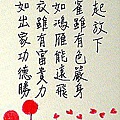 起放下
雀雖有色嚴身
如鴻雁能遠飛
衣雖有富貴力
如出家功德勝